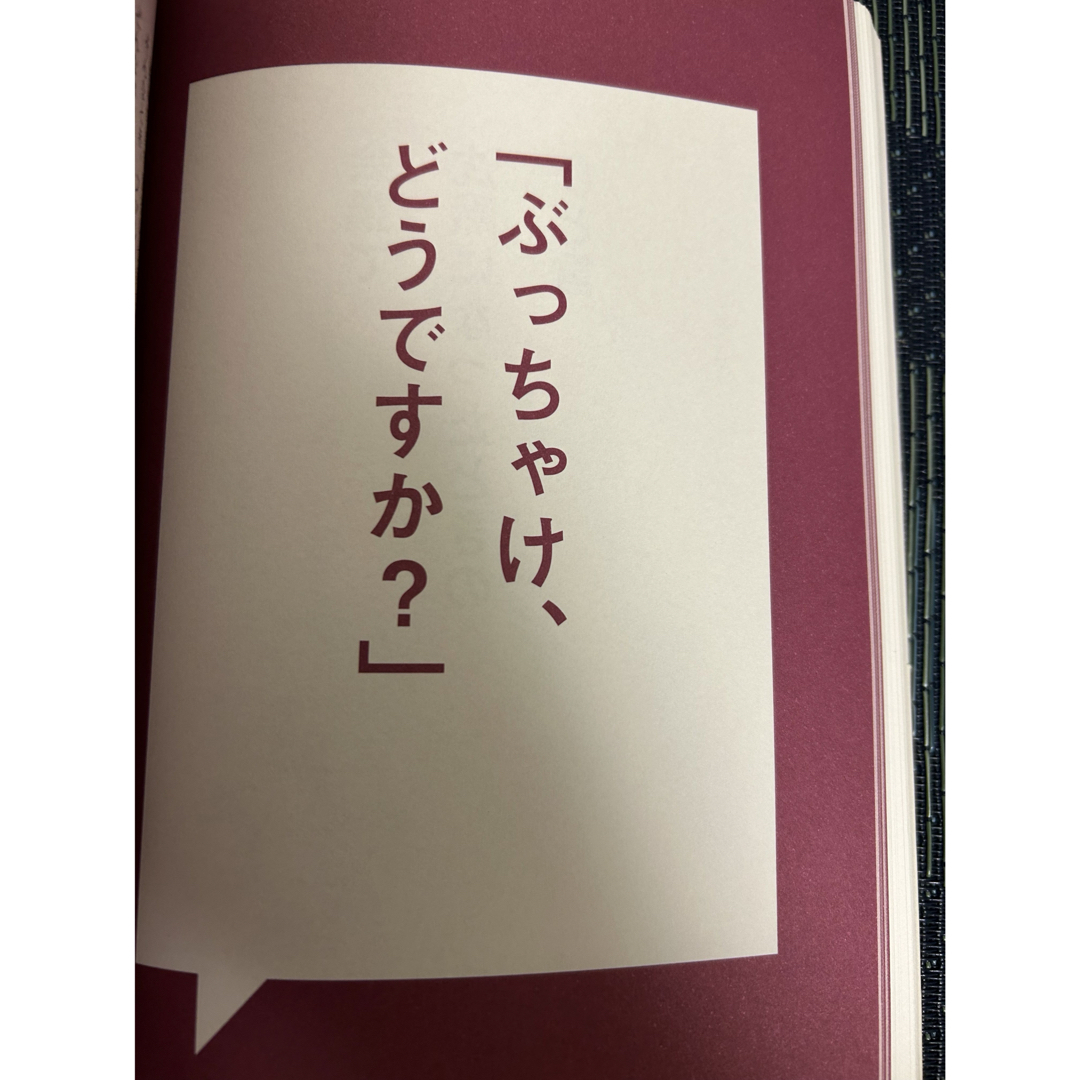 「ぶっちゃけ、
どうですか?」